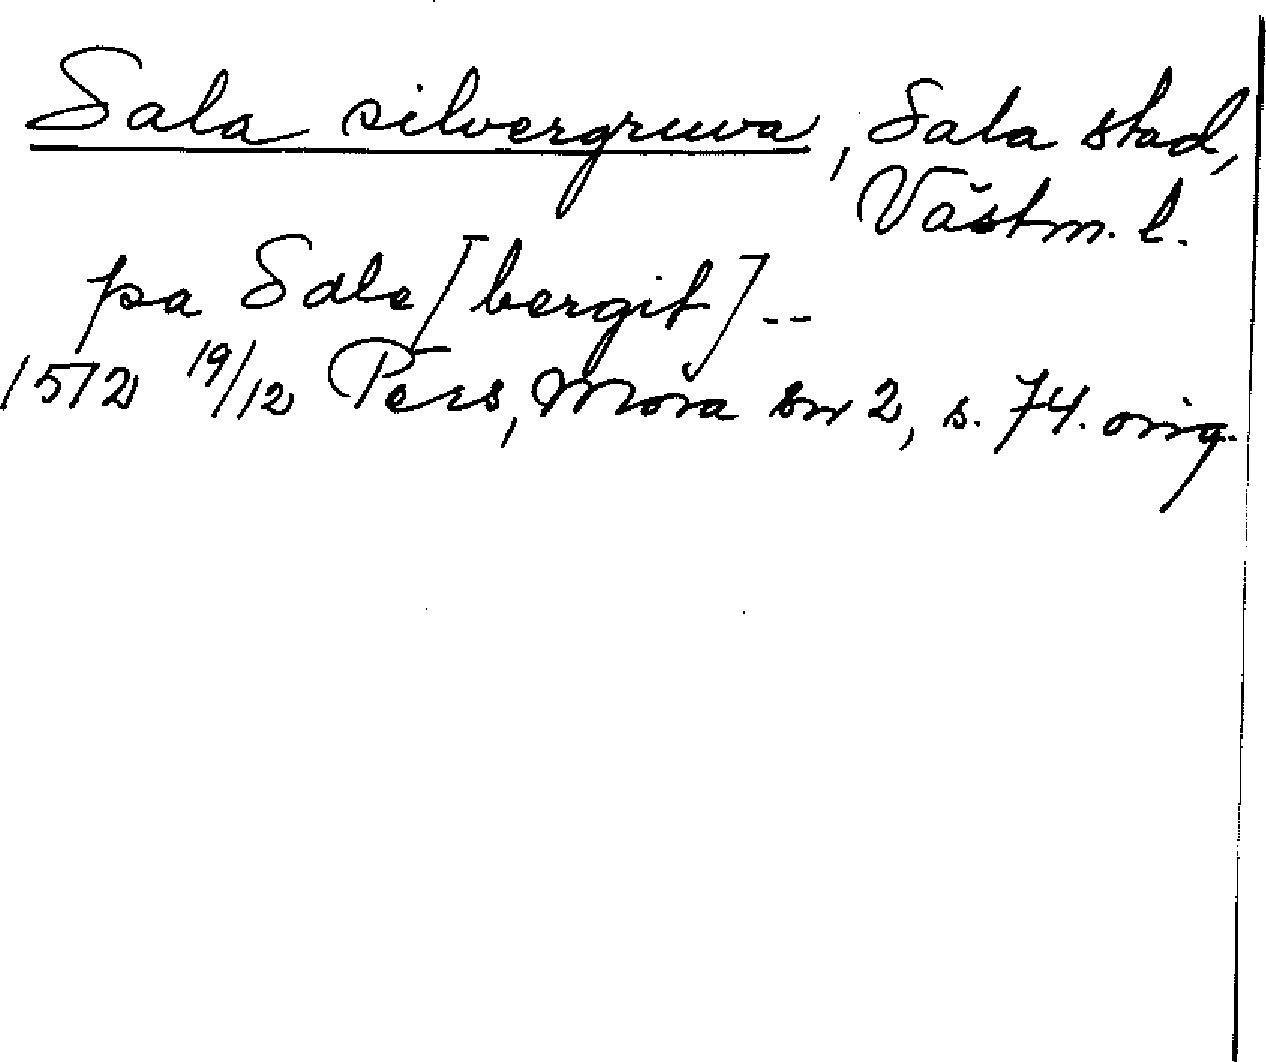 Sala silvergruva, Sala stad,
Västm. l.
pa Sale [bergit] --
1572 19/12 Pers, Mora sn 2, s. 74. orig.